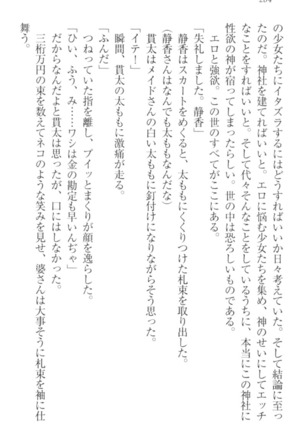 204
の少女たちにイタズラするにはどうすればいいか日々考えていた。そして結論に至っ
たのだ。神社を建てればいいと。エロに悩む少女たちを集め、神のせいにしてエッチ
なことをすればいいと。そして代々そんなことをしているうちに、本当にこの神社に
性欲の神が宿ってしまったらしい。世の中は恐ろしいものである。
エロと強欲。この世のすべてがここにある。
「失礼しました。静香」
静香はスカートをめくると、太ももにくくりつけた札束を取り出した。
「静香さんは今でも太ももなんだな」
貫太はメイドさんの白い太ももに釘付けになりながらそう思った。
「イテ！」
瞬間、貫太の太ももに激痛が走る。
「ふんだ」
つねっていた指を離し、プイッとまくりが顔を逸らした。
「ひい、ふう、み……ワシは金の勘定も早いんぢゃ」
だからなんだよと貫太は思ったが、口にはしなかった。
三桁万円の束を数えてネコのような笑みを見せ、婆さんは大事そうに札束を袖に仕
舞う。